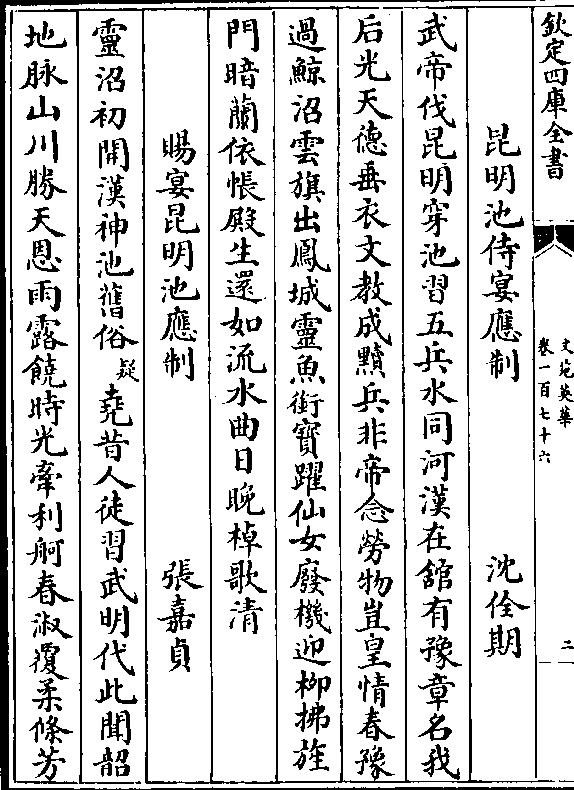 欽定四庫全書
文苑英華
卷一百七十六
二
昆明池侍宴應制 沈佺期
武帝伐昆明穿池習五兵水同河漢在舘有豫章名我
后光天德垂衣文教成黷兵非帝念勞物豈皇情春豫
過鯨沼雲旗出鳳城靈魚銜寶躍仙女廢機迎柳拂旌
門暗蘭依帳殿生還如流水曲日晩棹歌清
賜宴昆明池應制 張嘉貞
靈沼初開漢神池舊俗疑堯昔人徒習武明代此聞韶
地脉山川勝天恩雨露饒時光牽利舸春淑覆柔條芳